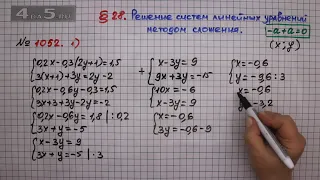 4-AS5.RU
§ 28. Решение систем линейных уравнений
методом сложения.
-a+a=0
(x; y)
№ 1052. 1)
0,2x-0,3(2y+1)=1,5
3(x+1)+3y=-2y-2
0,2x-0,6y-0,3=1,5
3x+3+3y-2y=-2
0,2x-0,6y=1,8 | :0,2
3x+y=-5
x-3y=9
3x+y=-5 | ·3
x-3y=9
9x+3y=-15
10x=-6
x-3y=9
x=-0,6
3y=-0,6-9
x=-0,6
y=-9,6:3
x=-0,6
y=-3,2